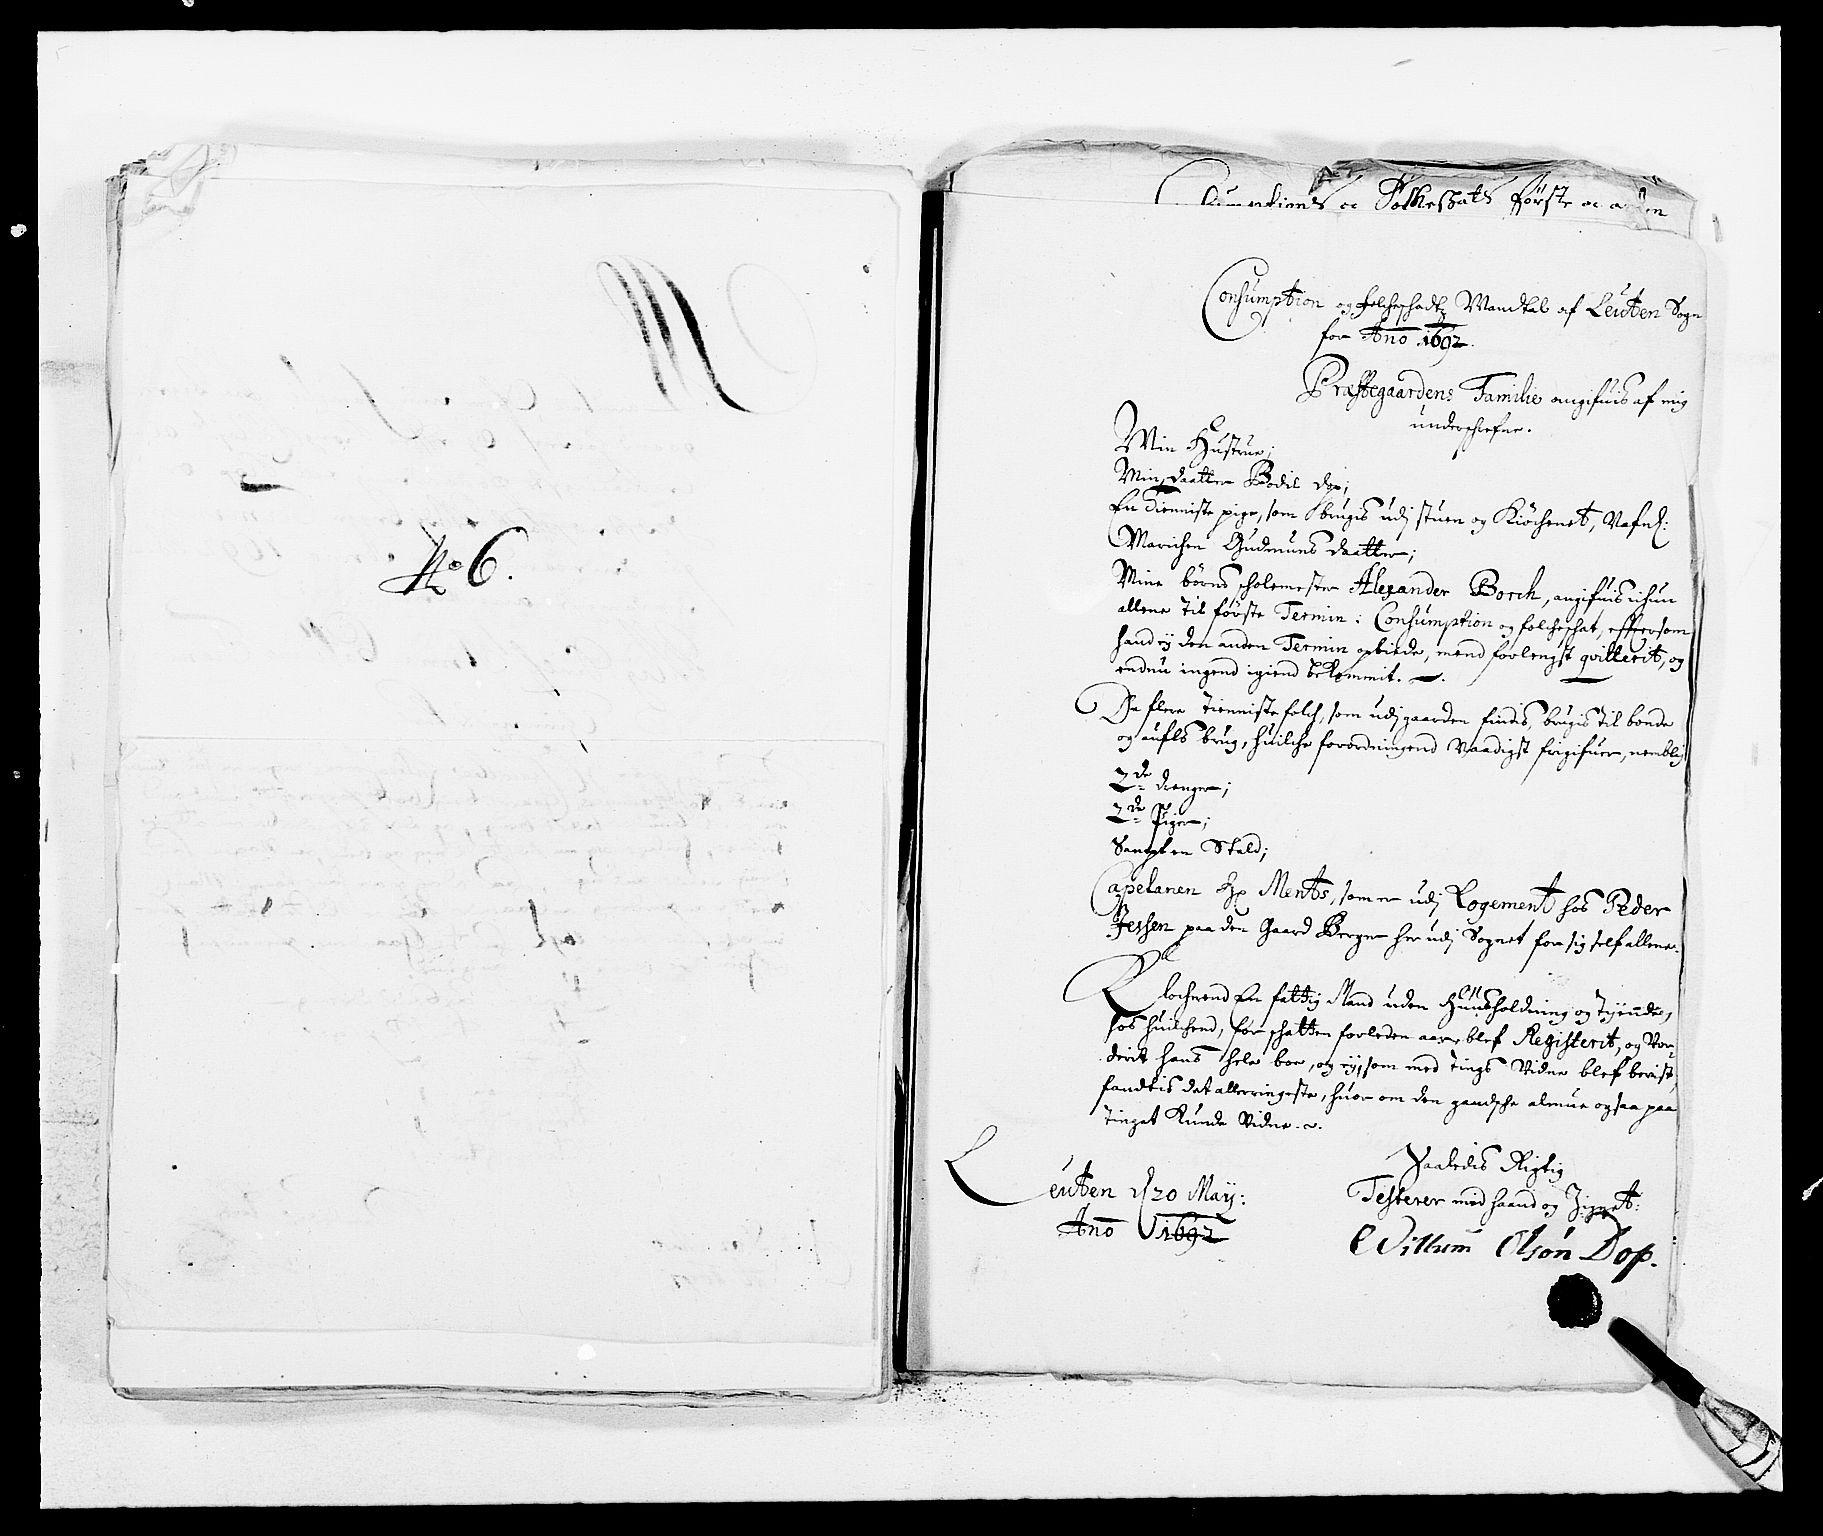 No 6.
Consumptions og Folkeskats første og anden
Consumption og folcheschadtz Mandtal af Leuten Sogn
for Ano 1692.
Præstegaardens Familie angifuis af mig
underschrefne.
Min Hustrue;
Min daatter Bodil Dop;
En Tienniste pige, som brugis udj stuen og Kiöchenet, Nafnl:
Marichen Gudmuns daatter;
Mine börns scholemester Alexander Borch, angifuis ichun
allene til förste Termin: Consumption og folcheschat, effersom
hand ej den anden Termin opbiede, mend forlengst qvitterit, og
endnu ingend igiend bekommit.
De flere Tienniste folch, som udj gaarden findis, brugis til bonde
og aufls brug, huilche forordningend Naadigst frigifuer, nemblig
2de drenge;
2de Piger;
Sampt en Stald;
Capelanen Hr Ments, som er udj Logement hos Peder
Jessen paa den Gaard Berger her udj Sognet for sig self allene.
Klocherend En fattig Mand uden Huusholdning og Tyende,
hos huilchend, for schatten forleden aar, blef Registerit, og Vor-
derit hans hele boe, og ej, som med tings Vidne blef bevist,
fandtis det allerringeste, huor om den gandsche almue ogsaa paa
tinget Kunde Vidne.
Saaledis Rigtig
Leuten d 20 Maij:
Testerer med haand og Zignet:
Ano 1692
Willum Olsön Dop.